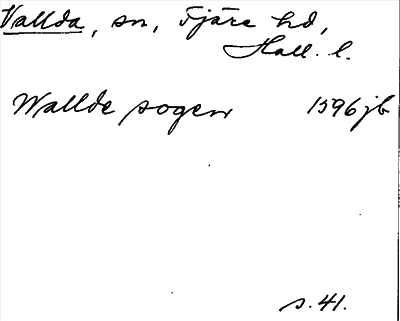 Vallda, sn, Fjäre hd,
Hall. l.
Wallde sogen 1596 jb
s. 41.